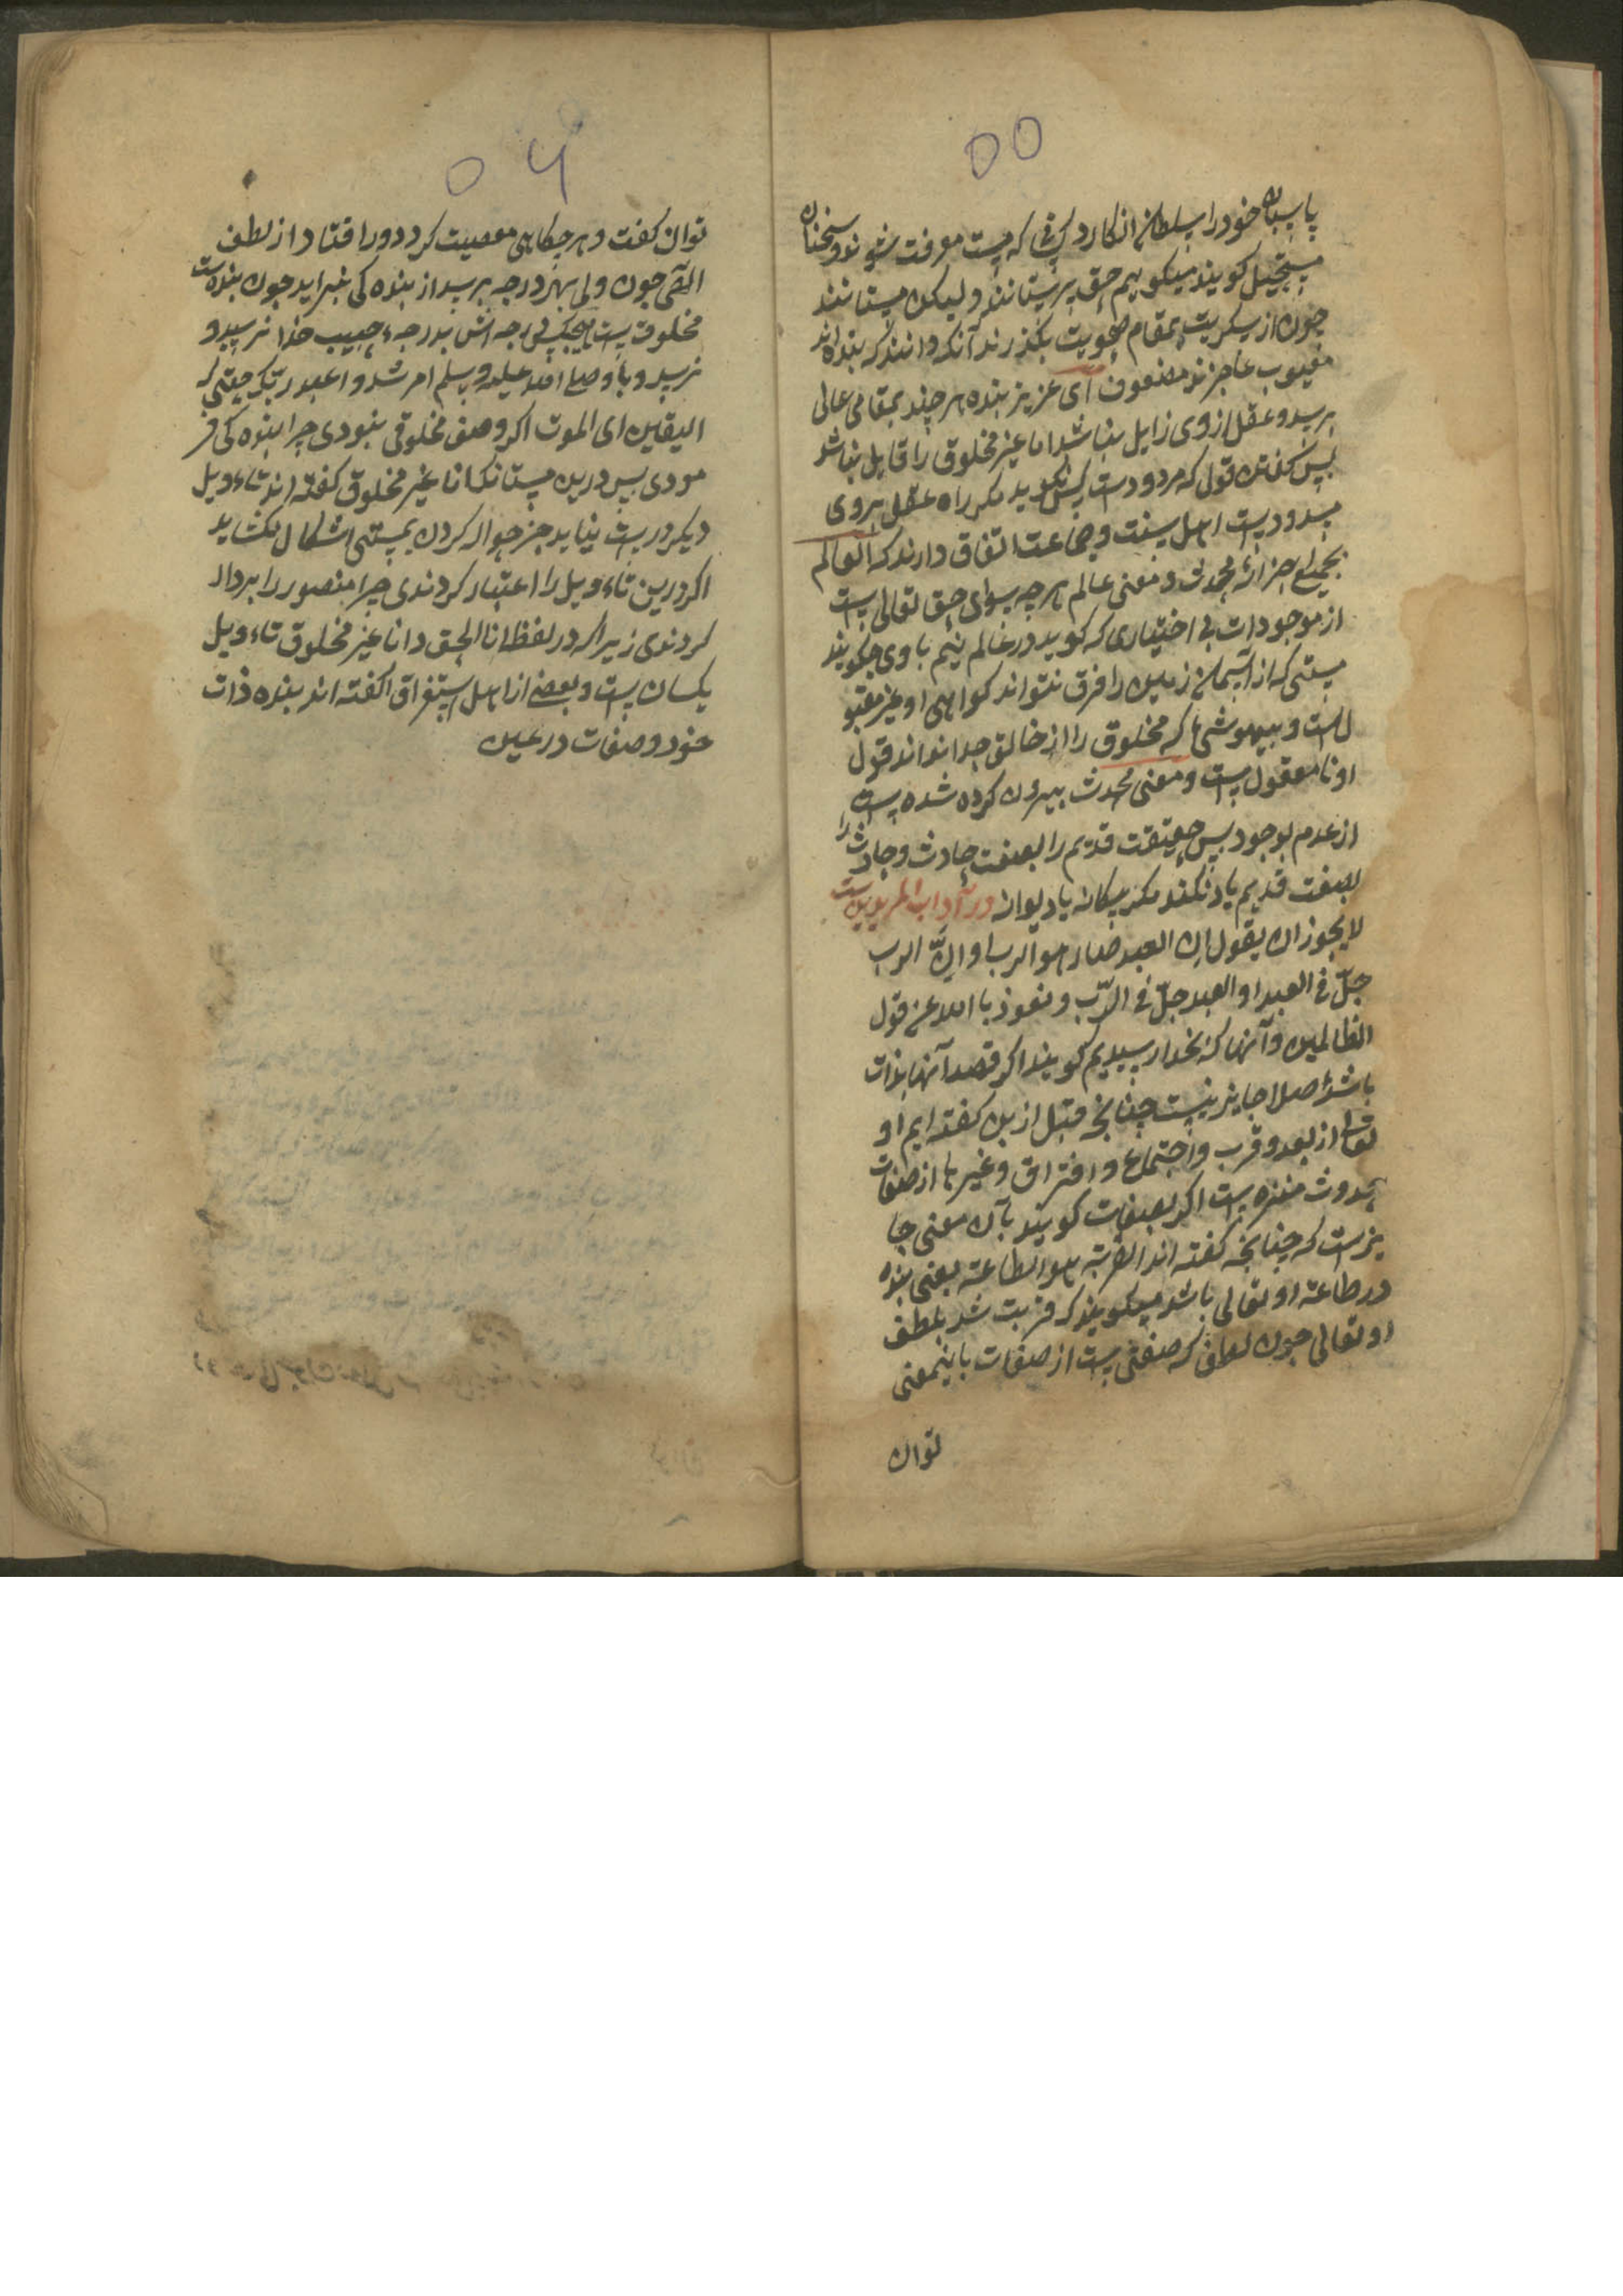 ۵۵
پاسبان خود را سلطان انکارد کسانی که مست معرفت شوند و سخنان
مستحیل کویند میکوییم حق پرستانند ولیکن مستانند
چون از سکریت بمقام صحویت بکذرند آنکه دانند که بنده اند
معیوب عاجزند مضعوف ای عزیز بنده هر چند بمقامی عالی
برسد و عقل از وی زایل نباشد اما غیر مخلوق را قایل نباشد
پس کفتن قول که مردودست کس نکوید مکر راه عقل بروی
مسدودست اهل سنت وجماعت اتفاق دارند که العالم
بجمیع اجزائه محدث و معنی عالم هر چه سوای حق تعالی است
از موجودات بی اختیاری که کوید در عالم نیم با وی چکویند
مستی که از آسمان زمین را فرق نتواند کواهی او غیر مقبو
لست و بیهوشی که مخلوق را از خالق جدا نداند قول
او نا معقول است و معنی محدث بیرون کرده شده است
از عدم بوجود پس حقیقت قدیم را بصفت حادث وحادث را
بصفت قدیم یاد نکند مکر بیکانه یا دیوانه در آداب المریدین ست
لا یجوز ان یقول ان العبد صار هو الرب او ان الرب
حلّ فی العبد او العبد حلّ فی الرّب و نعوذ بالله عن قول
الظالمین و آنها که بخدا رسیدیم کویند اکر قصد آنها بذات
باشد اصلا جایز نیست چنانچه قبل ازین کفته ایم او
تعالی از بعد و قرب و اجتماع و افتراق و غیرها از صفات
حدوث منزه است اکر بصفات کویند بآن معنی جا
یزست که چنانچه کفته اند القربة هو الطاعة یعنی بنده
در طاعة او تعالی باشد میکویند که قربت شد بلطف
او تعالی چون لطف که صفتی است از صفات باینمعنی
توان
۵۶
توان کفت و هر چکاهی معصیت کرد دور افتاد از لطف
الٰهی چون ولی بهر درجه برسد از بنده کی نبراید چون بنده ست
مخلوق است هیچکسی درجه اش بدرجهٔ حبیب خدا نرسید و
نرسد و با و صلی الله علیه وسلم امر شد واعبد ربّک حتی
الیقین ای الموت اکر وصف مخلوقی نبودی چرا بنده کی فر
مودی پس درین مستانکه انا غیر مخلوق کفته اند تاءویل
دیکر درست نیاید جز حواله کردن بمستی اشکال نکشاید
اکر درین تاءویل را اعتبار کردندی چرا منصور را بردار
کردندی زیرا که در لفظ انا الحق و انا غیر مخلوق تاءویل
یکسان است و بعضی از اهل استغراق کفته اند بنده ذات
خود و صفات در عین